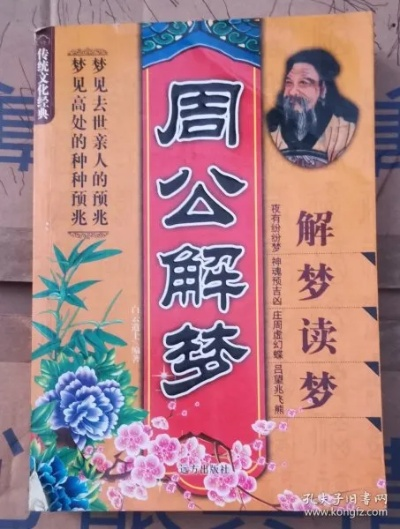 传统文化经典
梦见去世亲人的预兆
梦见高处的种种预兆
周公解梦
白云道士 编著
解梦读梦
夜有纷纷梦 神魂预吉凶
庄周虚幻蝶 吕望兆飞熊
远方出版社
孔夫子旧书网
www.kongfz.com